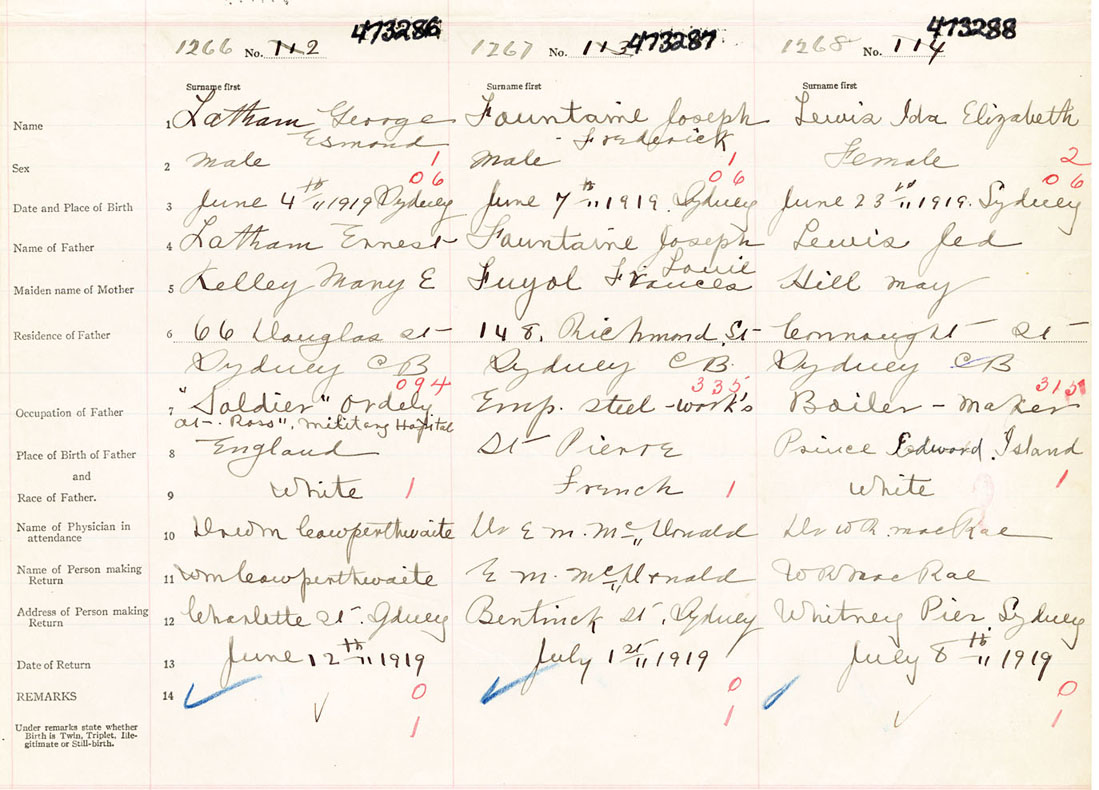 1266 No. 112 473286 1267 No. 113 473287 1268 No. 114 473288
Surname first Surname first Surname first
Name 1 Latham George Esmond Fountaine Joseph Frederick Lewis Ida Elizabeth
Sex 2 male 1 male 1 Female 2
06 06 06
Date and Place of Birth 3 June 4th 1919 Sydney June 7th 1919. Sydney June 23rd 1919. Sydney
Name of Father 4 Latham Ernest Fountaine Joseph Lewis Jed
Maiden name of Mother 5 Kelley Mary E Fuyol Frances Louie Hill May
Residence of Father 6 66 Douglas St 148, Richmond St Connaught St
Sydney CB Sydney CB. Sydney CB
094 335 315
Occupation of Father 7 "Soldier" Ordely Emp. Steel-work's Boiler-maker
at "Ross", military Hospital
Place of Birth of Father 8 England St Pierre Prince Edward Island
and
Race of Father. 9 White 1 French 1 White 1
Name of Physician in
attendance 10 Dr Wm Cowperthwaite Dr E M. McDonald Dr W R. MacRae
Name of Person making
Return 11 Wm Cowperthwaite E M. McDonald W R MacRae
Address of Person making
Return 12 Charlette St. Sydney Bentinck St, Sydney Whitney Pier, Sydney
Date of Return 13 June 12th 1919 July 1st 1919 July 8th 1919
REMARKS 14 0 0 0
Under remarks state whether
Birth is Twin, Triplet, Ille-
gitimate or Still-birth. 1 1 1